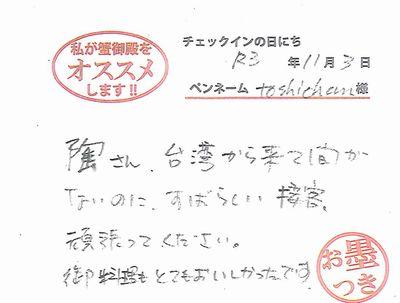 私が蟹御殿を
オススメ
します!!
チェックインの日にち
R3 年 11月 3日
ペンネーム toshichan 様
陶さん、台湾から来て間が
ないのに、すばらしい接客、
頑張ってください。
御料理もとてもおいしかったです
お墨
つき